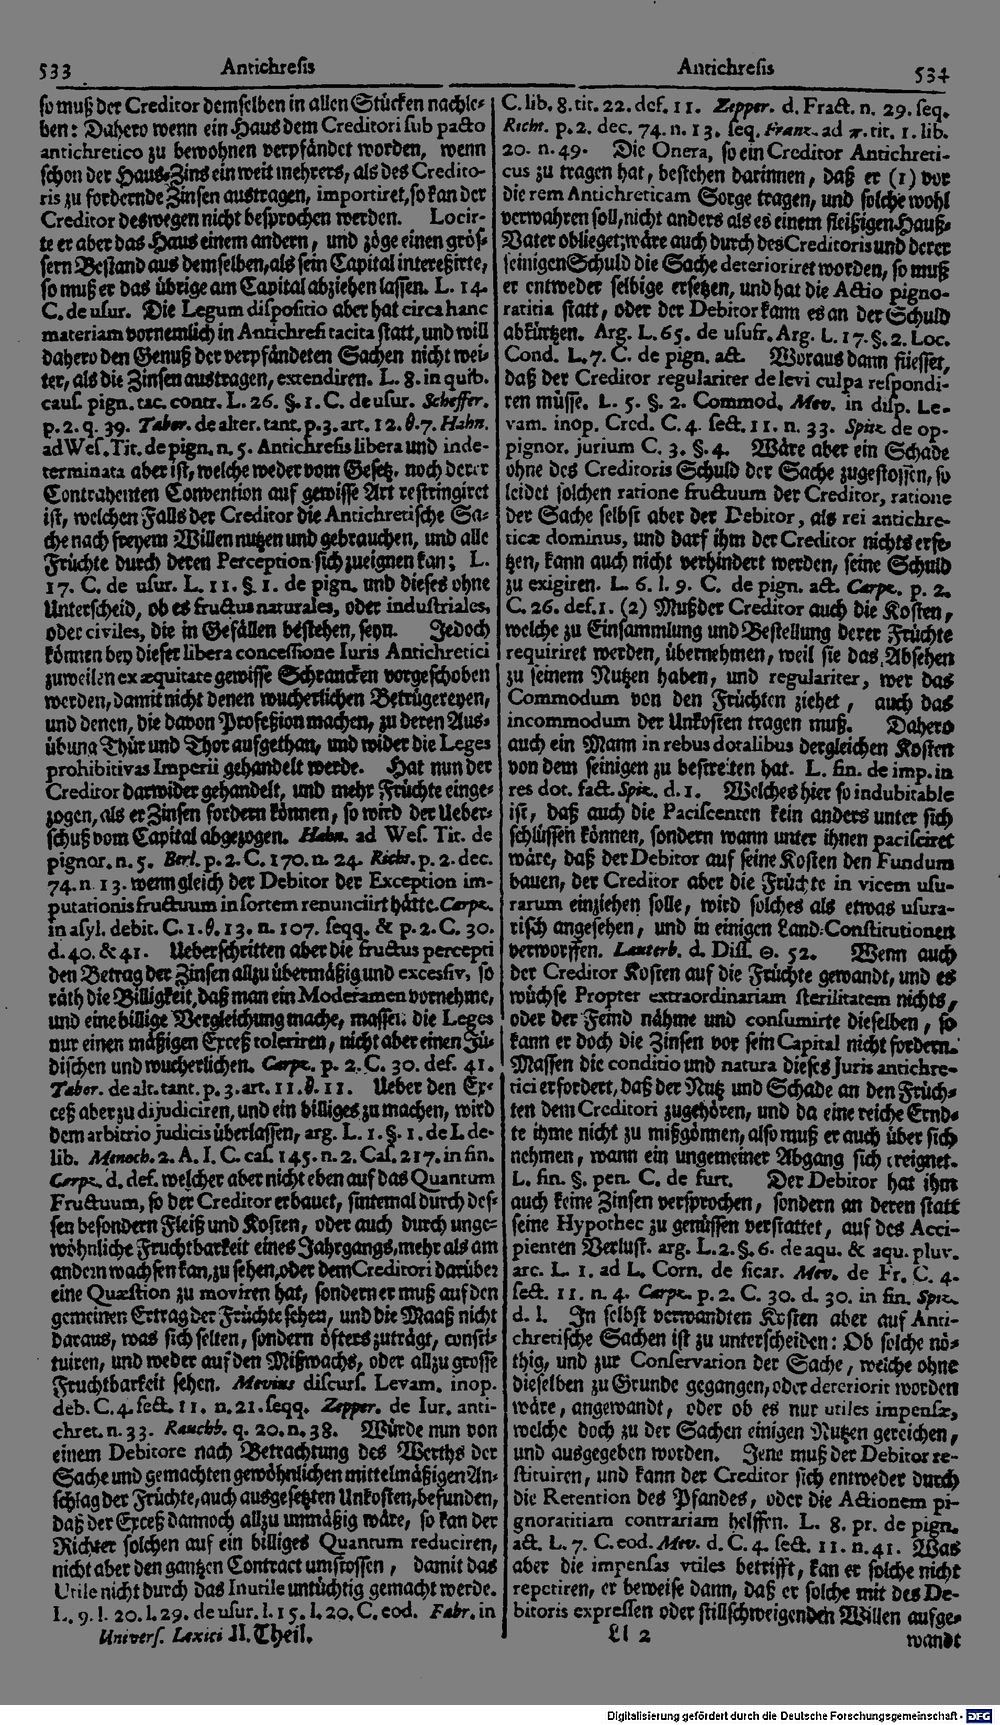 533 Antichresis
so muß der Creditor demselben in allen Stücken nachle-
ben: Dahero wenn ein Haus dem Creditori sub pacto
antichretico zu bewohnen verpfändet worden, wenn
schon der Haus-Zins ein weit mehrers, als des Credito-
ris zu fordernde Zinsen austragen, importiret, so kan der
Creditor deswegen nicht besprochen werden. Locir-
te er aber das Haus einem andern, und zöge einen grös-
sern Bestand aus demselben, als sein Capital intereßirte,
so muß er das übrige am Capital abziehen lassen. L. 14.
C. de usur. Die Legum dispositio aber hat circa hanc
materiam vornemlich in Antichresi tacita statt, und will
dahero den Genuß der verpfändeten Sachen nicht wei-
ter, als die Zinsen austragen, extendiren. L. 8. in quib.
caus. pign. tac. contr. L. 26. §. 1. C. de usur. Scheffer.
p. 2. q. 39. Tabor. de alter. tant. p. 3. art. 12. θ. 7. Hahn.
ad Wes. Tit. de pign. n. 5. Antichresis libera und inde-
terminata aber ist, welche weder vom Gesetz, noch derer
Contrahenten Convention auf gewisse Art restringiret
ist, welchen Falls der Creditor die Antichretische Sa-
che nach freyem Willen nutzen und gebrauchen, und alle
Früchte durch deren Perception sich zueignen kan; L.
17. C. de usur. L. 11. §. 1. de pign. und dieses ohne
Unterscheid, ob es fructus naturales, oder industriales,
oder civiles, die in Gefällen bestehen, seyn. Jedoch
können bey dieser libera concessione Iuris Antichretici
zuweilen ex æquitate gewisse Schrancken vorgeschoben
werden, damit nicht denen wucherlichen Betrügereyen,
und denen, die davon Profeßion machen, zu deren Aus-
übung Thür und Thor aufgethan, und wider die Leges
prohibitivas Imperii gehandelt werde. Hat nun der
Creditor darwider gehandelt, und mehr Früchte einge-
zogen, als er Zinsen fordern können, so wird der Ueber-
schuß vom Capital abgezogen. Hahn. ad Wes. Tit. de
pignor. n. 5. Berl. p. 2. C. 170. n. 24. Richt. p. 2. dec.
74. n 13. wenn gleich der Debitor der Exception im-
putationis fructuum in sortem renunciirt hätte. Carpz.
in asyl. debit. C. 1. θ. 13. n. 107. seqq. & p. 2. C. 30.
d. 40. & 41. Ueberschritten aber die fructus percepti
den Betrag der Zinsen allzu übermäßig und excessiv, so
räth die Billigkeit, daß man ein Moderamen vornehme,
und eine billige Vergleichung mache, massen die Leges
nur einen mäßigen Exceß toleriren, nicht aber einen Jü-
dischen und wucherlichen. Carpz. p. 2. C. 30. def. 41.
Tabor. de alt. tant. p. 3. art. 11. θ. 11. Ueber den Ex-
ceß aber zu dijudiciren, und ein billiges zu machen, wird
dem arbitrio judicis überlassen, arg. L. 1. §. 1. de I. de-
lib. Menoch. 2. A. I. C. cas. 145. n. 2. Cas. 217. in fin.
Carpz. d. def. welcher aber nicht eben auf das Quantum
Fructuum, so der Creditor erbauet, sintemal durch des-
sen besondern Fleiß und Kosten, oder auch durch unge-
wöhnliche Fruchtbarkeit eines Jahrgangs, mehr als am
andern wachsen kan, zu sehen, oder dem Creditori darüber
eine Quæstion zu moviren hat, sondern er muß auf den
gemeinen Ertrag der Früchte sehen, und die Maaß nicht
daraus, was sich selten, sondern öfters zuträgt, consti-
tuiren, und weder auf den Mißwachs, oder allzu grosse
Fruchtbarkeit sehen. Mevius discurs. Levam. inop.
deb. C. 4. sect. 11. n. 21. seqq. Zepper. de Iur. anti-
chret. n. 33. Rauchb. q. 20. n. 38. Würde nun von
einem Debitore nach Betrachtung des Werths der
Sache und gemachten gewöhnlichen mittelmäßigen An-
schlag der Früchte, auch ausgesetzten Unkosten, befunden,
daß der Exceß dannoch allzu unmäßig wäre, so kan der
Richter solchen auf ein billiges Quantum reduciren,
nicht aber den gantzen Contract umstossen, damit das
Utile nicht durch das Inutile untüchtig gemacht werde.
L. 9. l. 20. l. 29. de usur. l. 15. l. 20. C. eod. Fabr. in
Univers. Lexici II. Theil.
Antichresis 534
C. lib. 8. tit. 22. def. 11. Zepper. d. Fract. n. 29. seq.
Richt. p. 2. dec. 74. n. 13. seq. Franz. ad π. tit. 1. lib.
20. n. 49. Die Onera, so ein Creditor Antichreti-
cus zu tragen hat, bestehen darinnen, daß er (1) vor
die rem Antichreticam Sorge tragen, und solche wohl
verwahren soll, nicht anders als es einem fleißigen Hauß-
Vater oblieget; wäre auch durch des Creditoris und derer
seinigen Schuld die Sache deterioriret worden, so muß
er entweder selbige ersetzen, und hat die Actio pigno-
ratitia statt, oder der Debitor kann es an der Schuld
abkürtzen. Arg. L. 65. de usufr. Arg. L. 17. §. 2. Loc.
Cond. L. 7. C. de pign. act. Woraus dann fliesset,
daß der Creditor regulariter de levi culpa respondi-
ren müsse. L. 5. §. 2. Commod. Mev. in disp. Le-
vam. inop. Cred. C. 4. sect. 11. n. 33. Spitz. de op-
pignor. jurium C. 3. §. 4. Wäre aber ein Schade
ohne des Creditoris Schuld der Sache zugestossen, so
leidet solchen ratione fructuum der Creditor, ratione
der Sache selbst aber der Debitor, als rei antichre-
ticæ dominus, und darf ihm der Creditor nichts erse-
tzen, kann auch nicht verhindert werden, seine Schuld
zu exigiren. L. 6. l. 9. C. de pign. act. Carpz. p. 2.
C. 26. def. 1. (2) Muß der Creditor auch die Kosten,
welche zu Einsammlung und Bestellung derer Früchte
requiriret werden, übernehmen, weil sie das Absehen
zu seinem Nutzen haben, und regulariter, wer das
Commodum von den Früchten ziehet, auch das
incommodum der Unkosten tragen muß. Dahero
auch ein Mann in rebus dotalibus dergleichen Kosten
von dem seinigen zu bestreiten hat. L. fin. de imp. in
res dot. fact. Spitz. d. 1. Welches hier so indubitable
ist, daß auch die Paciscenten kein anders unter sich
schlüssen können, sondern wann unter ihnen pacisciret
wäre, daß der Debitor auf seine Kosten den Fundum
bauen, der Creditor aber die Früchte in vicem usu-
rarum einziehen solle, wird solches als etwas usura-
risch angesehen, und in einigen Land-Constitutionen
verworffen. Lauterb. d. Diss. Θ. 52. Wenn auch
der Creditor Kosten auf die Früchte gewandt, und es
wüchse Propter extraordinariam sterilitatem nichts,
oder der Feind nähme und consumirte dieselben, so
kann er doch die Zinsen vor sein Capital nicht fordern.
Massen die conditio und natura dieses Juris antichre-
tici erfordert, daß der Nutz und Schade an den Früch-
ten dem Creditori zugehören, und da eine reiche Ernd-
te ihme nicht zu mißgönnen, also muß er auch über sich
nehmen, wann ein ungemeiner Abgang sich ereignet.
L. fin. §. pen. C. de furt. Der Debitor hat ihm
auch keine Zinsen versprochen, sondern an deren statt
seine Hypothec zu genüssen verstattet, auf des Acci-
pienten Verlust. arg. L. 2. §. 6. de aqu. & aqu. pluv.
arc. L. 1. ad L. Corn. de sicar. Mev. de Fr. C. 4.
sect. 11. n. 4. Carpz. p. 2. C. 30. d. 30. in fin. Spitz.
d. l. In selbst verwandten Kosten aber auf Anti-
chretische Sachen ist zu unterscheiden: Ob solche nö-
thig, und zur Conservation der Sache, welche ohne
dieselben zu Grunde gegangen, oder deteriorit worden
wäre, angewandt, oder ob es nur utiles impensæ,
welche doch zu der Sachen einigen Nutzen gereichen,
und ausgegeben worden. Jene muß der Debitor re-
stituiren, und kann der Creditor sich entweder durch
die Retention des Pfandes, oder die Actionem pi-
gnoratitiam contrariam helffen. L. 8. pr. de pign.
act. L. 7. C. eod. Mev. d. C. 4. sect. 11. n. 41. Was
aber die impensas vtiles betrifft, kan er solche nicht
repetiren, er beweise dann, daß er solche mit des De-
bitoris expressen oder stillschweigenden Willen aufge-
Ll 2 wandt
Digitalisierung gefördert durch die Deutsche Forschungsgemeinschaft - DFG